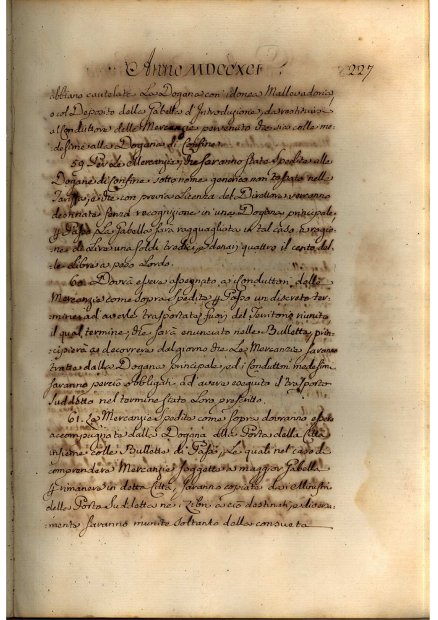 Anno MDCCXCI 227
abbiano cautelate La Dogana con idonea Mallevadoria,
o col Deposito della Gabella d'Introduzione, da restituirsi
al Conduttore delle Mercanzie pervenuto che sia colle me-
desime alla Dogana di Confine.
59. Per le Mercanzie, che saranno state spedite alle
Dogane di Confine sotto nome generico non tassato nella
Tariffa, e che con previa Licenza del Direttore verranno
destinate senza recognizione in una Dogana principale
p Passo La Gabella sarà ragguagliata in tal caso a ragio-
ne di Lire una soldi tredici, e denari quattro il cento del-
le Libbre a peso Lordo.
60. Dovrà essere assegnato ai Conduttori delle
Mercanzie come sopra spedite p Passo un discreto ter-
mine ad averle trasportate fuori del Territorio riunito
il qual termine, che sarà enunciato nelle Bullette, prin-
cipierà a decorrere dal giorno che Le Mercanzie saranno
tratte dalla Dogana principale, ed i Conduttori medesimi
saranno perciò obbligati ad avere eseguito il trasporto
suddetto nel termine stato Loro prescritto.
61. Le Mercanzie spedite come sopra dovranno essere
accompagnate dalla Dogana alla Porta della Città
insieme colle Bullette di Passo, Le quali nel caso di
comprendere Mercanzie soggette a maggior Gabella
p rimanere in detta Città, saranno copiate dai Ministri
delle Porte suddette nei Libri a ciò destinati, e diversa-
mente saranno munite soltanto della consueta